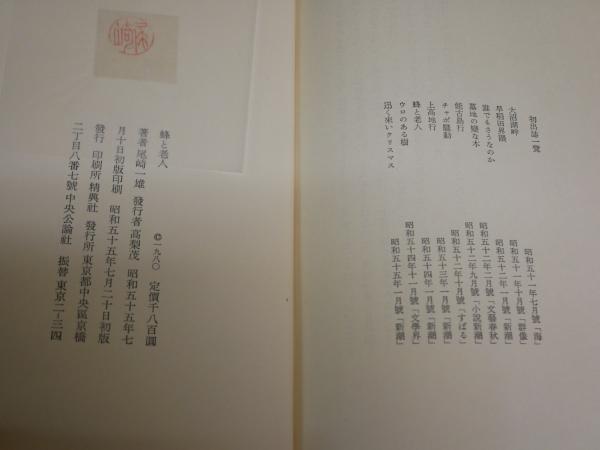 初出誌一覧
大沼湖畔
早稻田界隈
誰でもさうなのか
墓地の變な木
能古島行
チャボ騒動
上高地行
蜂と老人
ウロのある樹
迅く來いクリスマス
昭和五十一年七月號「海」
昭和五十一年十月號「群像」
昭和五十二年一月號「新潮」
昭和五十二年二月號「文藝春秋」
昭和五十二年九月號「小説新潮」
昭和五十二年十月號「すばる」
昭和五十三年一月號「新潮」
昭和五十四年一月號「新潮」
昭和五十四年十一月號「文學界」
昭和五十五年一月號「新潮」
蜂と老人
©一九八〇 定價千八百圓
著者 尾崎一雄 發行者 高梨茂 昭和五十五年七
月十日初版印刷 昭和五十五年七月二十日初版
發行 印刷所 精興社 發行所 東京都中央區京橋
二丁目八番七號 中央公論社 振替 東京二-三四